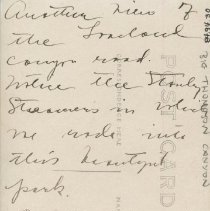 Another view of
the Loveland
canyon road.
Note the Stanly
Steamers in which
we rode into
this beautiful
park.
POST CARD
BIG THOMPSON CANYON